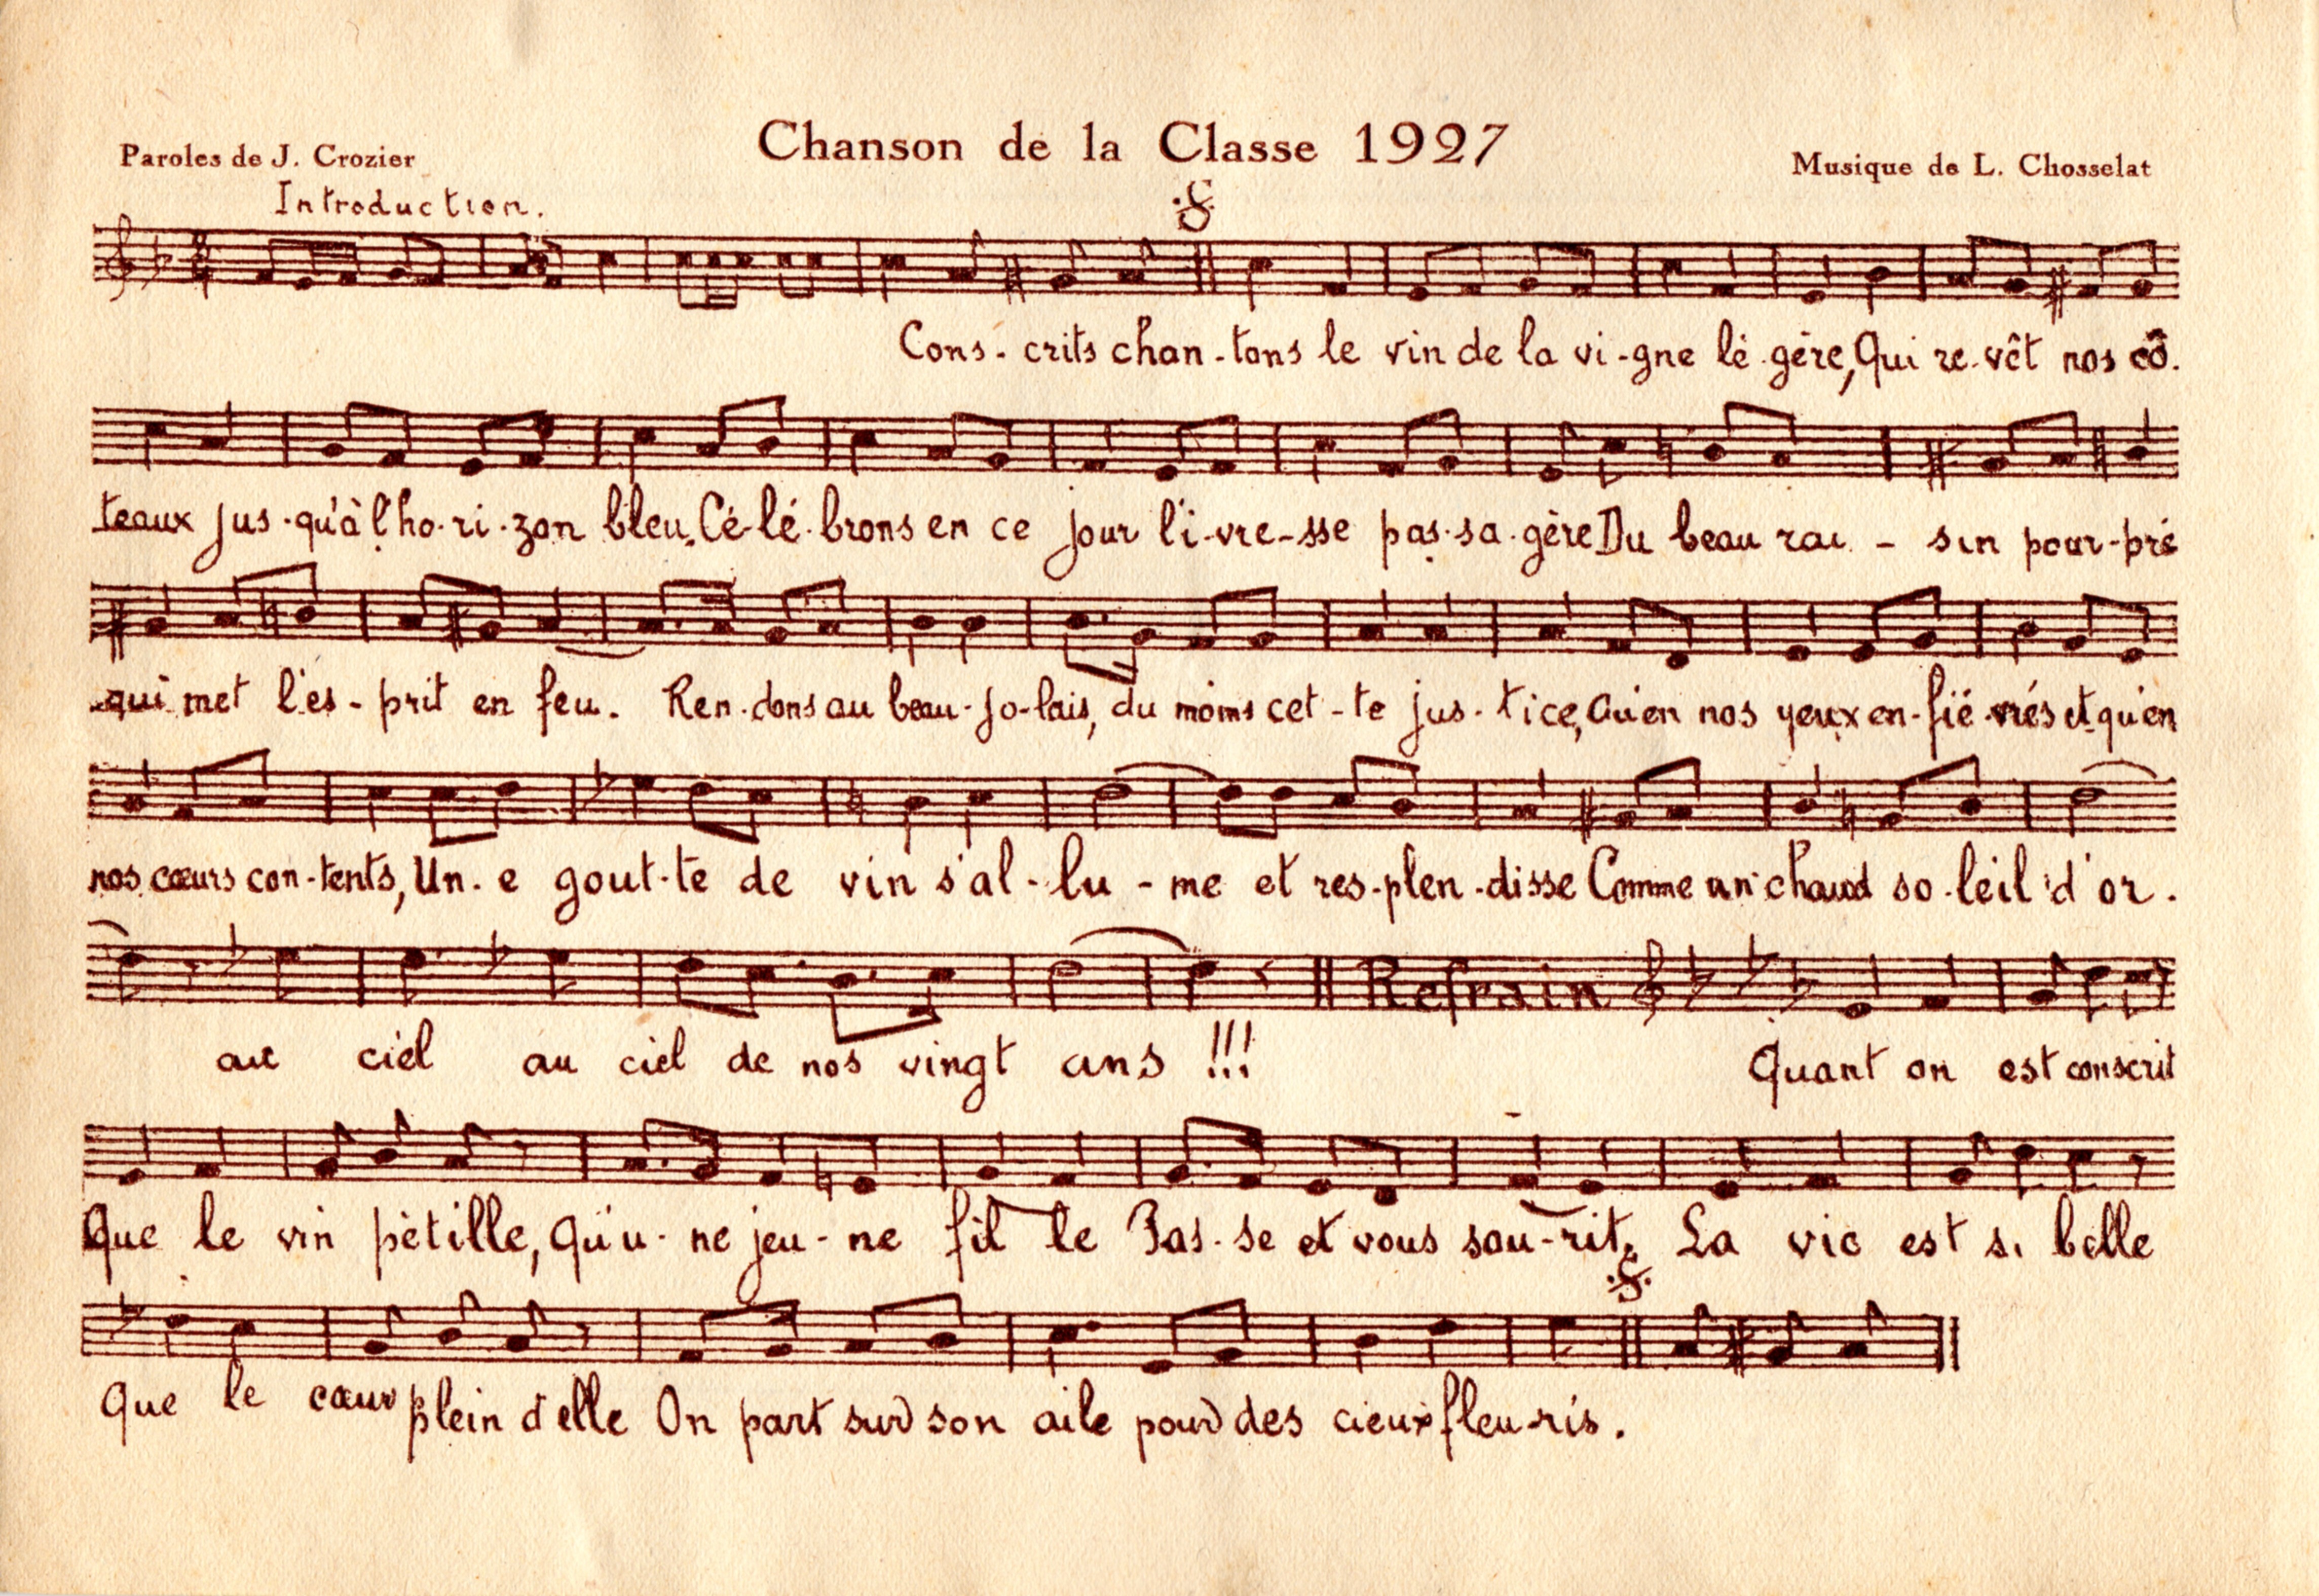 Chanson de la Classe 1927
Paroles de J. Crozier
Musique de L. Chosselat
Introduction.
Cons.- crits chan-tons le vin de la vi-gne lé.gère, Qui re.vêt nos cô.
teaux jus.qu'à l'ho.ri.zon bleu. Cé-lé.brons en ce jour l'i-vre-sse pas.sa.gère Du beau rai - sin pour-pré
qui met l'es-prit en feu. Ren.dons au beau-jo-lais, du moins cet-te jus.tice, Qu'en nos yeux en-fié.vrés et qu'en
nos cœurs con-tents, Un.e gout.te de vin s'al-lu-me et res.plen.disse Comme un chaud so.leil d'or.
au ciel au ciel de nos vingt ans !!!
Refrain
Quant on est conscrit
Que le vin pètille, Qu'u-ne jeu-ne fil le Pas.se et vous sou-rit. La vie est si belle
Que le cœur plein d'elle On part sur son aile pour des cieux fleu-ris.